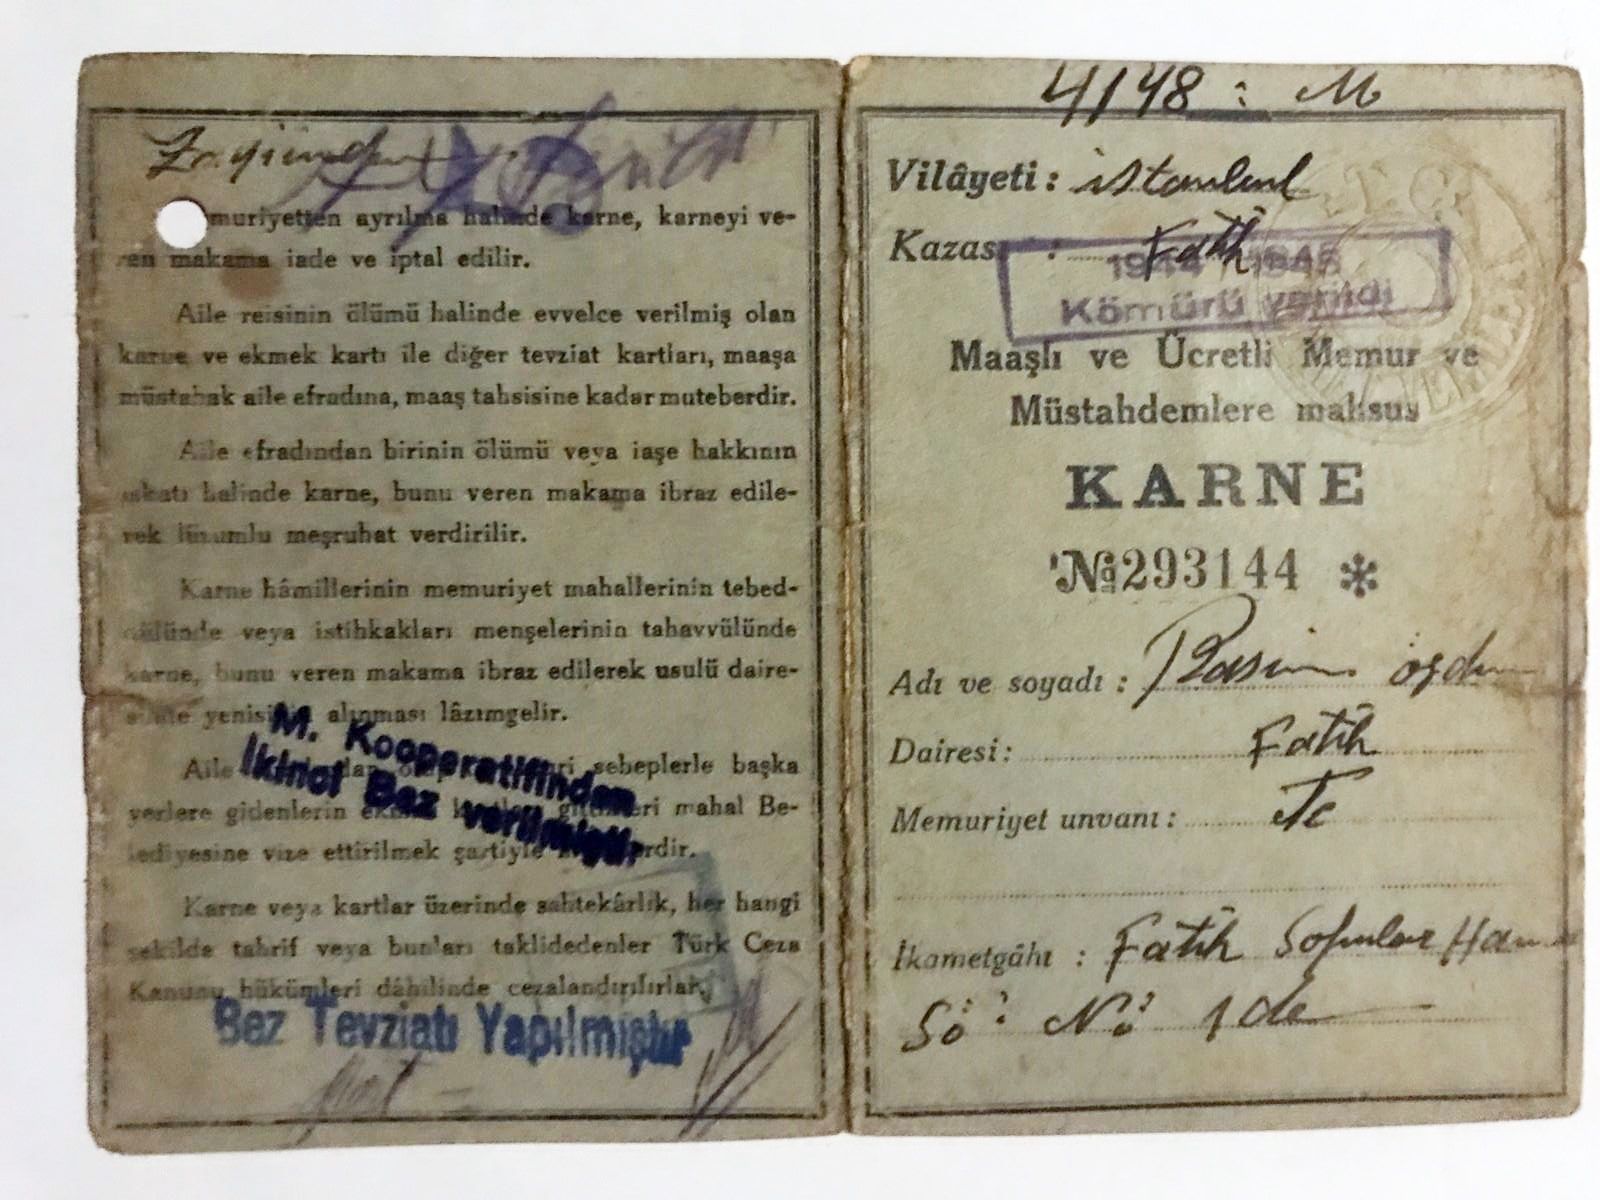 Zayiinden
muriyetten ayrılma halinde karne, karneyi ve-
ren makama iade ve iptal edilir.
Aile reisinin ölümü halinde evvelce verilmiş olan
karne ve ekmek kartı ile diğer tevziat kartları, maaşa
müstahak aile efradına, maaş tahsisine kadar muteberdir.
Aile efradından birinin ölümü veya iaşe hakkının
iskatı halinde karne, bunu veren makama ibraz edile-
rek lüzumlu meşruhat verdirilir.
Karne hâmillerinin memuriyet mahallerinin tebed-
dülünde veya istihkakları menşelerinin tahavvülünde
karne, bunu veren makama ibraz edilerek usulü daire-
sinde yenisinin alınması lâzımgelir.
M. Kooperatifinden
İkinci Bez verilmiştir
Aile sebeplerle başka
yerlere gidenlerin mahal Be-
lediyesine vize ettirilmek şartiyle
Karne veya kartlar üzerinde sahtekârlık, her hangi
şekilde tahrif veya bunları taklidedenler Türk Ceza
Kanunu hükümleri dâhilinde cezalandırılırlar.
Bez Tevziatı Yapılmıştır
4/48 : M
Vilâyeti : istanbul
Kazası : Fatih
1944 / 1945
Kömürü verildi
Maaşlı ve Ücretli Memur ve
Müstahdemlere mahsus
KARNE
No 293144 *
Adı ve soyadı : Rasim
Dairesi : Fatih
Memuriyet unvanı :
İkametgâhı : Fatih Sofular Hamam
So : No : 1 de